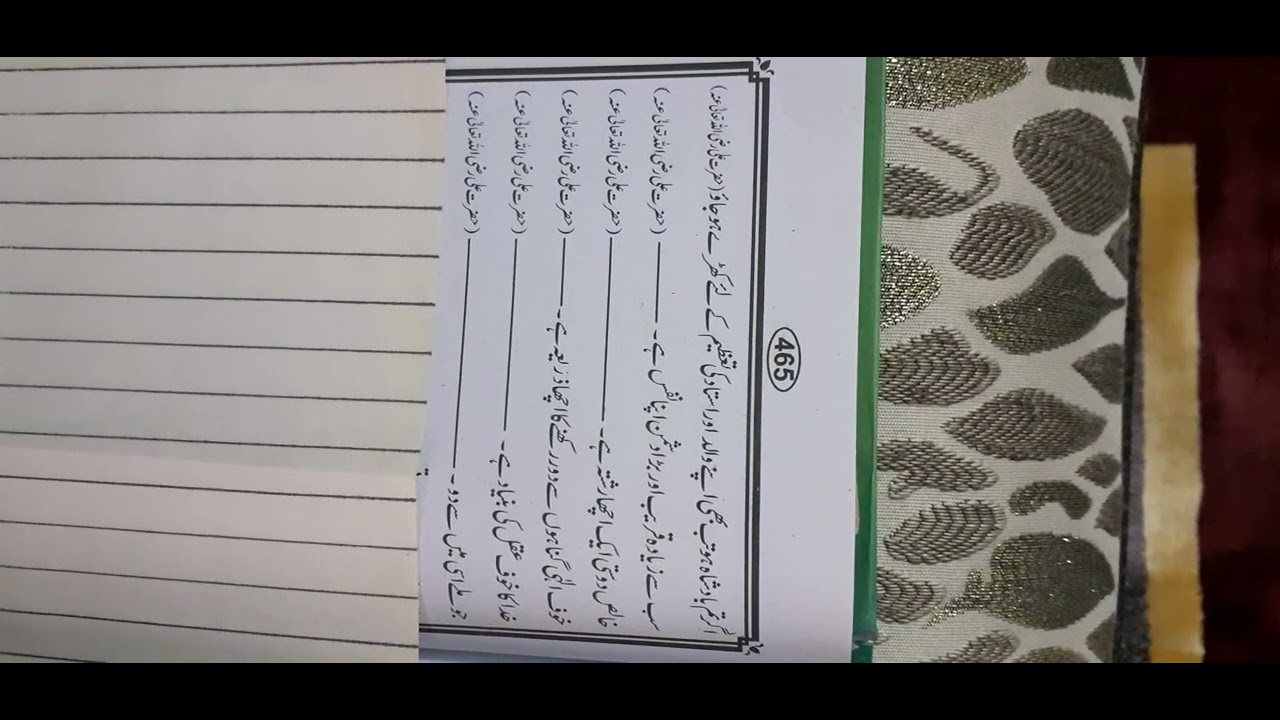 465
اگر تم بادشاہ ہو تب بھی اپنے والد اور استاد کی تعظیم کے لئے کھڑے ہو جاؤ (حضرت علی رضی اللہ تعالیٰ عنہ)
سب سے زیادہ قریب اور بڑا دشمن اپنا نفس ہے۔ (حضرت علی رضی اللہ تعالیٰ عنہ)
خالص دوستی ایک اچھا رشتہ ہے۔ (حضرت علی رضی اللہ تعالیٰ عنہ)
خوف الٰہی گناہوں سے دور رکھنے کا اچھا ذریعہ ہے۔ (حضرت علی رضی اللہ تعالیٰ عنہ)
خدا کا خوف عقل کی بنیاد ہے۔ (حضرت علی رضی اللہ تعالیٰ عنہ)
جو ملے اسی میں سے دو۔ (حضرت علی رضی اللہ تعالیٰ عنہ)